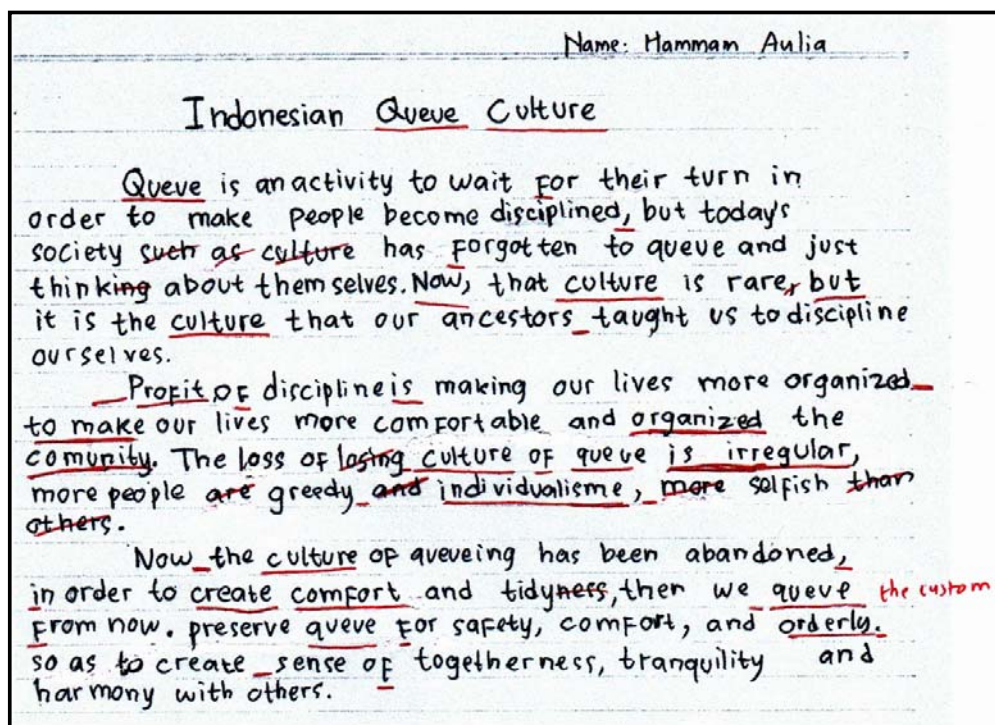 Name: Hammam Aulia
Indonesian Queue Culture
Queue is an activity to wait for their turn in
order to make people become disciplined, but today's
society such as culture has forgotten to queue and just
thinking about themselves. Now, that culture is rare, but
it is the culture that our ancestors taught us to discipline
ourselves.
Profit of discipline is making our lives more organized
to make our lives more comfortable and organized the
comunity. The loss of losing culture of queue is irregular,
more people are greedy and individualisme, more selfish than
others.
Now the culture of queueing has been abandoned,
in order to create comfort and tidyness, then we queue the custom
from now. preserve queue for safety, comfort, and orderly.
so as to create sense of togetherness, tranquility and
harmony with others.